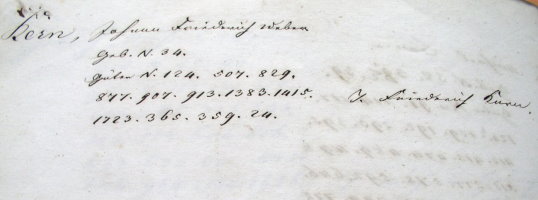 Kern, Johann Friederich Weber
Geb. N. 34.
Güter N. 124. 507. 829.
877. 907. 913. 1383. 1415. J. Friederich Kurn.
1723. 365. 359. 24.